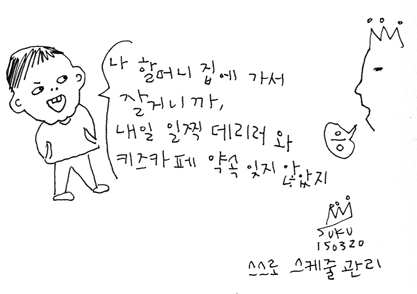 나 할머니 집에 가서
잘거니까,
내일 일찍 데리러 와
키즈카페 약속 잊지 않았지
응
SUKU
150320
스스로 스케줄 관리